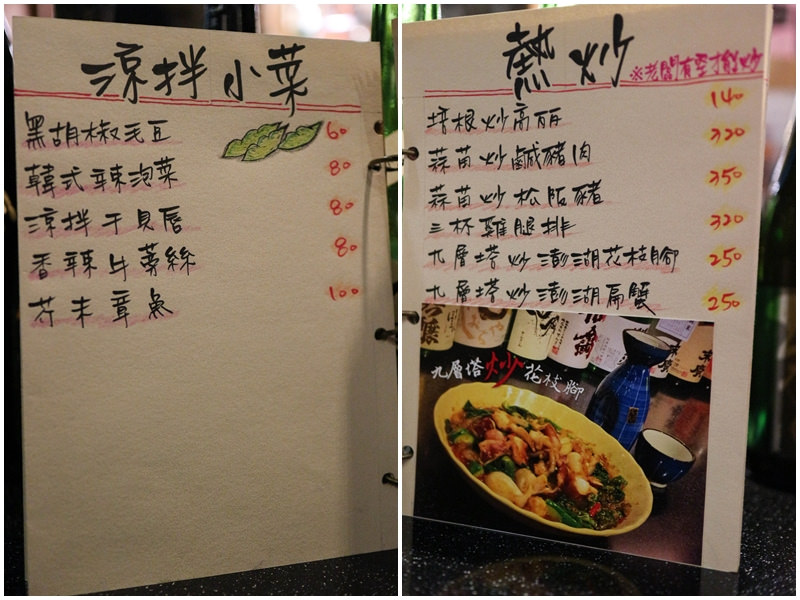 涼拌小菜
黑胡椒毛豆
60
韓式辣泡菜
80
涼拌干貝唇
80
香辣牛蒡絲
80
芥末章魚
100
熱炒
※老闆有空才能炒
培根炒高麗
140
蒜苗炒鹹豬肉
320
蒜苗炒松阪豬
350
三杯雞腿排
320
九層塔炒澎湖花枝腳
250
九層塔炒澎湖扁蟹
250
九層塔炒花枝腳